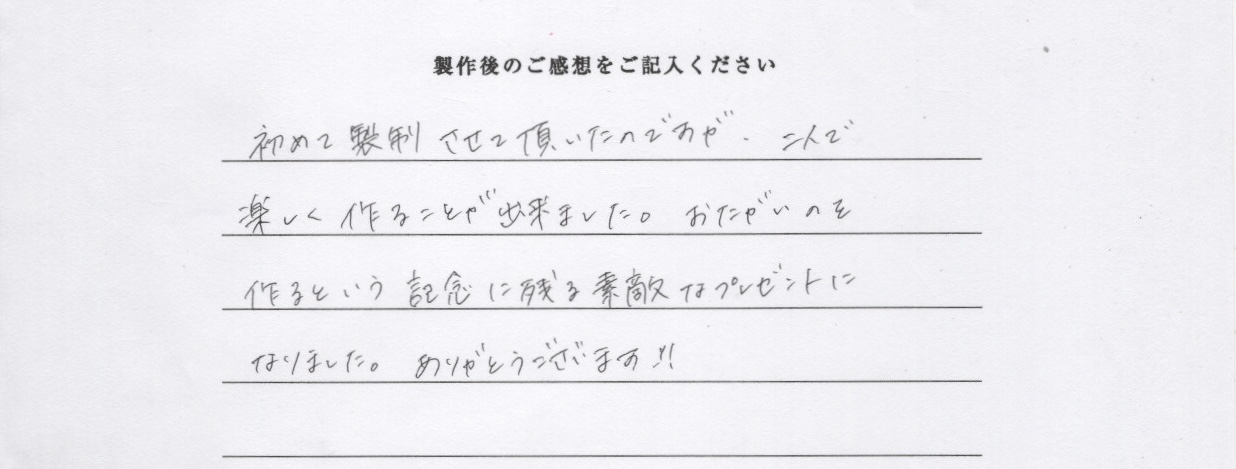 製作後のご感想をご記入ください
初めて製制させて頂いたのですが、二人で
楽しく作ることが出来ました。おたがいのを
作るという記念に残る素敵なプレゼントに
なりました。ありがとうございます!!